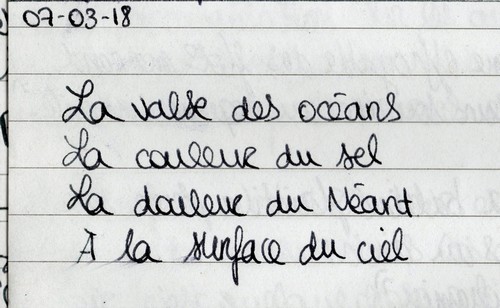 07-03-18
La valse des océans
La couleur du sel
La douleur du Néant
À la surface du ciel